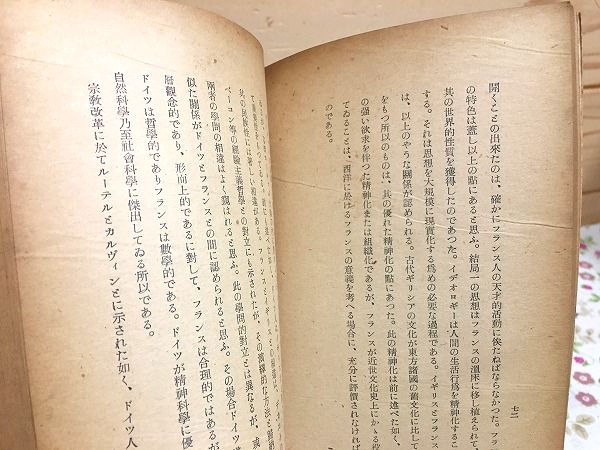 七二
開くことの出來たのは、確かにフランス人の天才的活動に俟たねばならなかつた。フラン
の特色は蓋し以上の點にあると思ふ。結局一の思想はフランスの溫床に移し植ゑられて、
其の世界的性質を獲得したのであつた。イデオロギーは人間の生活行爲を精神化するこ
する。それは思想を大規模に現實化する爲めの必要な過程である。イギリスとフランス
は、以上のやうな關係が認められる。古代ギリシアの文化が東方諸國の舊文化に比して
をもつ所以のものは、其の優れた精神化の點にあつた。此の精神化は前に述べた如く、
の强い欲求を伴つた精神化または組織化であるが、フランスが近世文化史上にかゝる役
てゐることは、西洋に於けるフランスの意義を考へる場合に、充分に評價されなければ
のである。
其の民族性には著しい相違がある。フランスとイギリスとの
ベーコン等の經驗主義哲學との對立にも示されたが、その演繹的な方法と歸納
兩者の學問の相違はよく窺はれると思ふ。此の學問的對立とは異なるが、或
似た關係がドイツとフランスとの間に認められると思ふ。その場合ドイツ
層觀念的であり、形而上的であるに對して、フランスは合理的ではあるが
ドイツは哲學的でありフランスは數學的である。ドイツが精神科學に優
自然科學乃至社會科學に傑出してゐる所以である。
宗敎改革に於てルーテルとカルヴィンとに示された如く、ドイツ人